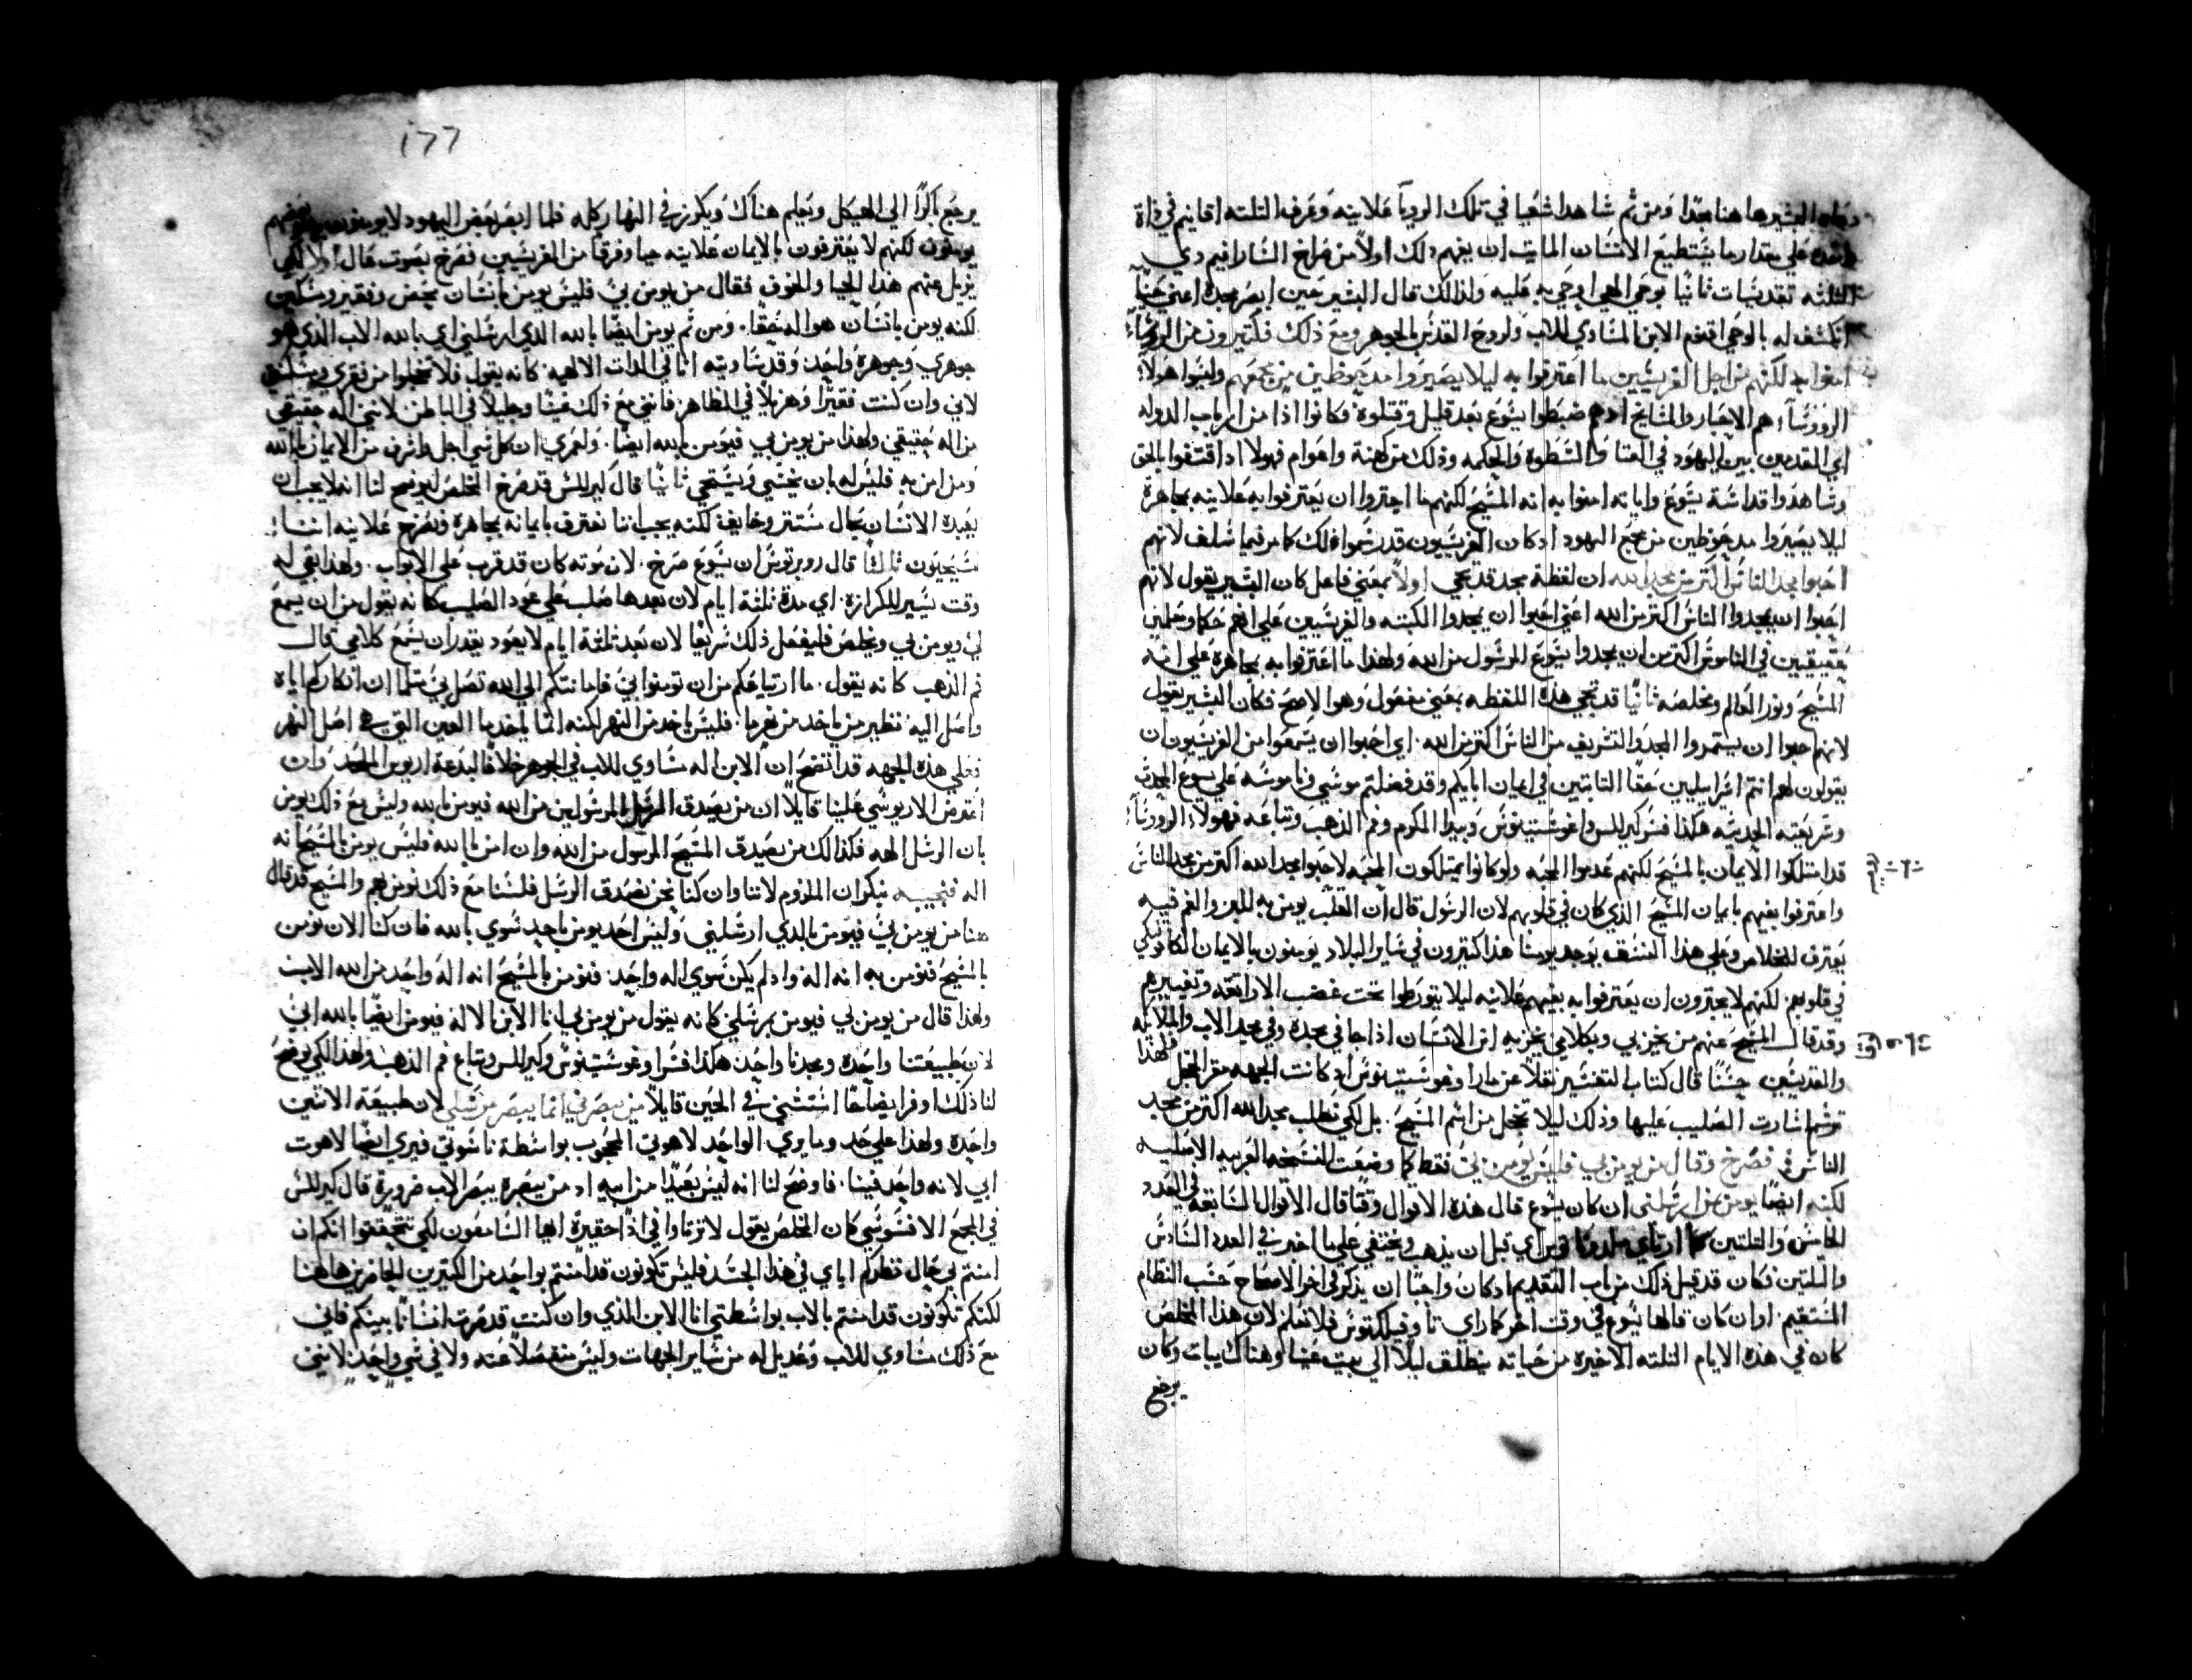 البشير هاهنا بمجدا ومن ثم شاهد اشعيا في تلك الرويا علانيه وعرف التلته اقانيم في ذاة
واحده علي مقدار ما يستطيع الانسان المايت ان يفهم ذلك اولاً من صراخ السارافيم دي
التلته تقديسات ثانيا بوحي الهي اوحي به عليه ولذالك قال البشير حين ابصر مجده اعني
انكشف له بالوحي اقنوم الابن المساوي للاب ولروح القدس بالجوهر ومع ذلك فكتيرون من الروسا
امنوا به لكنهم من اجل الفريسيين ما اعترفوا به ليلا يصيروا مدحوظين من مجمعهم وليوا هولا
الروسا هم الاحبار والمشايخ ادهم ضبطوا يسوع بعد قليل وقتلوه فكانوا اذا من ارباب الدوله
اي المقدمين بين اليهود في الغنا والسطوه والحكمه وذلك من كهنة واعوام فهولا اد اقتنعوا بالحق
وشاهدوا قداسة يسوع واياته امنوا به انه المسيح لكنهم ما اجتروا ان يعترفوا به علانيه بمجاهرة
ليلا يصيروا مدحوظين من مجمع اليهود ادكان الفريسيون قد رسموا ذلك كما مر فيما سلف لانهم
احبوا مجد الناس اكتر من مجد الله ان لفظة مجد قد تجي اولاً بمعني فاعل كان البشير يقول لانهم
احبوا ان يمجدوا الناس اكتر من الله اعني احبوا ان يمجدوا الكتبه والفريسيين علي انهم حكما ومعلمين
حقيقيين في الناموس اكتر من ان يمجدوا يسوع المرسول من الله ولهذا ما اعترفوا به بمجاهرة علي انه
المسيح ونور العالم ومخلصه ثانيا قد تجي هذه اللفظه بمعني مفعول وهو الاصح فكان البشير يقول
لانهم احبوا ان يستمروا المجد والتشريف من الناس اكتر من الله اي احبوا ان يسمعوا من الفريسيون ان
يقولون لهم انتم اسراييليين حقا التابتين في ايمان ابايكم وقد فضلتم موسي وناموسه علي يسوع المحدث
وشريعته الحديثه هكذا فسر كيرللس واغوستينوس وبيدا المكرم وفم الذهب وتباعه فهولاء الروسا
قد امتلكوا الايمان بالمسيح لكنهم عدموا المحبه ولو كانوا يمتلكون المحبه لاحبوا مجد الله اكتر من مجد الناس
واعترفوا بفيهم بايمان المسيح الذي كان في قلوبهم لان الرسول قال ان القلب يومن به للبر والفم فبه
يعترف للخلاص وعلي هذا النسق يوجد يومنا هذا كتيرون في ساير البلاد يومنون بالايمان الكاتوليكي
في قلوبهم لكنهم لا يجترون ان يعترفوا به بفيهم علانيه ليلا يتورطوا تحت غضب الاراتقه وتعييرهم
وقد قال المسيح عنهم من يخزي بي وبكلامي يخزيه ابن الانسان اذا جا في مجده وفي مجد الاب والملايكه
والقديسين حسنا قال كتاب التفسير نقلا عن مار اوغوستينوس اد كانت الجبهه مقر الخجل فلهذا
ترسم اشارت الصليب عليها وذلك ليلا نخجل من اسم المسيح بل لكي نطلب مجد الله اكتر من مجد
الناس فصرخ وقال من يومن بي فليس يومن بي فقط كما وضعت النسخه العربيه الاصليه
لكنه ايضا يومن بمن ارسلني ان كان يسوع قال هذه الاقوال وقتا قال الاقوال السابقه في العدد
الخامس والتلتين كما ارتاي ملدوناتوس اي قبل ان يذهب ويختفي علي ما اخبر في العدد السادس
والتلتين فكان قد قبل ذلك من باب التقديم ادكان واجبا ان يذكر في اخر الاصحاح حسب النظام
المستقيم او ان كان قالها يسوع في وقت اخر كما راي تاوفيلكتوس فلا نعلم لان هذا المخلص
كان في هذه الايام التلته الاخيره من حياته ينطلق ليلا الي بيت عنيا وهناك يبات وكان
يرجع
١٦٦
يرجع باكرًا الي الهيكل ويعلم هناك ويكوزر في النهار كله فلما ابصر بعض اليهود لا يومنون وبعضهم
يومنون لكنهم لا يعترفون بالايمان علانيه حيا وفرقا من الفريسيين فصرخ بصوت قال اولا لكي
يزيل عنهم هذا الحيا والخوف فقال من يومن بي فليس يومن بانسان محض وفقير ومسكين
لكنه يومن بانسان هو اله حقا ومن ثم يومن ايضًا بالله الذي ارسلني اي بالله الاب الذي هو
جوهري وجوهره واحد وقد ساويته انا في الدات الالهيه كانه يقول فلا تخجلوا من فقري ومسكنتي
لاني وان كنت فقيرًا وهزيلًا في الظاهر فانني مع ذلك غنيًا وجليلًا في الباطن لانني اله حقيقي
من اله حقيقي ولهذا من يومن بي فيومن بالله ايضا ولعمري ان كل شي اجل واشرف من الايمان بالله
ومن امن به فليس له بان يختشي ويستحي ثانيًا قال كيرللس قد صرخ المخلص ليوضح لنا انه لا يجب ان
يعبده الانسان بحال مستتر وخايف لكنه يجب اننا نعترف بايمانه بمجاهرة ونصرخ علانيه اننا
مسيحيون ثالثا قال روبرتوس ان يسوع صرخ لان موته كان قد قرب علي الابواب ولهذا بقي له
وقت يسير للكرازه اي مدة ثلثة ايام لان بعدها صلب علي عود الصليب كانه يقول من ان يسمع
لي ويومن بي ويخلص فليفعل ذلك سريعًا لان بعد ثلثة ايام لا يعود يقدر ان يسمع كلامي قال
فم الذهب كانه يقول ما ارتياعكم من ان تومنوا بي فامانتكم الي الله تصل بي كما ان انكاركم اياه
واصل اليه نظير من ياخد من نهر ما فليس ياخد من النهر لكنه انما ياخد ما العين التي هي اصل النهر
فعلي هذه الجهه قد اتضح ان الابن اله مساوي للاب في الجوهر خلافا لبدعة اريوس الملحد وان
اعترض الاريوسي علينا قايلًا ان من يصدق الرسل المرسولين من الله فيومن بالله وليس مع ذلك يومن
بان الرسل الهه فكذالك من يصدق المسيح المرسول من الله وان امن بالله فليس يومن بالمسيح انه
اله فنجيبه بنكران الملزوم لاننا وان كنا نحن نصدق الرسل فلسنا مع ذلك نومن بهم والمسيح قد قال
هنا من يومن بي فيومن بالدي ارسلني وليس احد يومن باحد سوي بالله فان كنا الان نومن
بالمسيح فنومن به انه اله واد لم يكن سوي اله واحد فنومن بالمسيح انه اله واحد من الله الاب
ولهذا قال من يومن بي فيومن بمرسلي كانه يقول من يومن بي انا الابن الاله فيومن ايضًا بالله ابي
لان طبيعتنا واحده ومجدنا واحد هكذا فسر اوغوستينوس وكيرللس وتباع فم الذهب ولهذا لكي يوضح
لنا ذلك اوفر ايضاحًا استتني في الحين قايلًا من يبصرني انما يبصر من ارسلني لان طبيعة الاتنين
واحده ولهذا علي حد وما يري الواحد لاهوتي المحجوب بواسطة ناسوتي فيري ايضا لاهوت
ابي لانه واحد فينا فاوضح لنا انه ليس بعيدًا من ابيه اد من يبصره يبصر الاب ضرورة قال كيرللس
في المجمع الافسوسي كان المخلص يقول لا ترتاوا في اذا حقيرة ايها السامعون لكي تتحققوا انكم ان
امنتم بي حال نظركم اياي في هذا الجسد فليس تكونون قد امنتم بواحد من الكتيرين الحاضرين هاهنا
لكنكم تكونون قد امنتم بالاب بواسطتي انا الابن الذي وان كنت قد صرت انسانًا بينكم فاني
مع ذلك مساوي للاب وعديل له من ساير الجهات وليس منفصلًا عنه ولا في شي واحد لانني